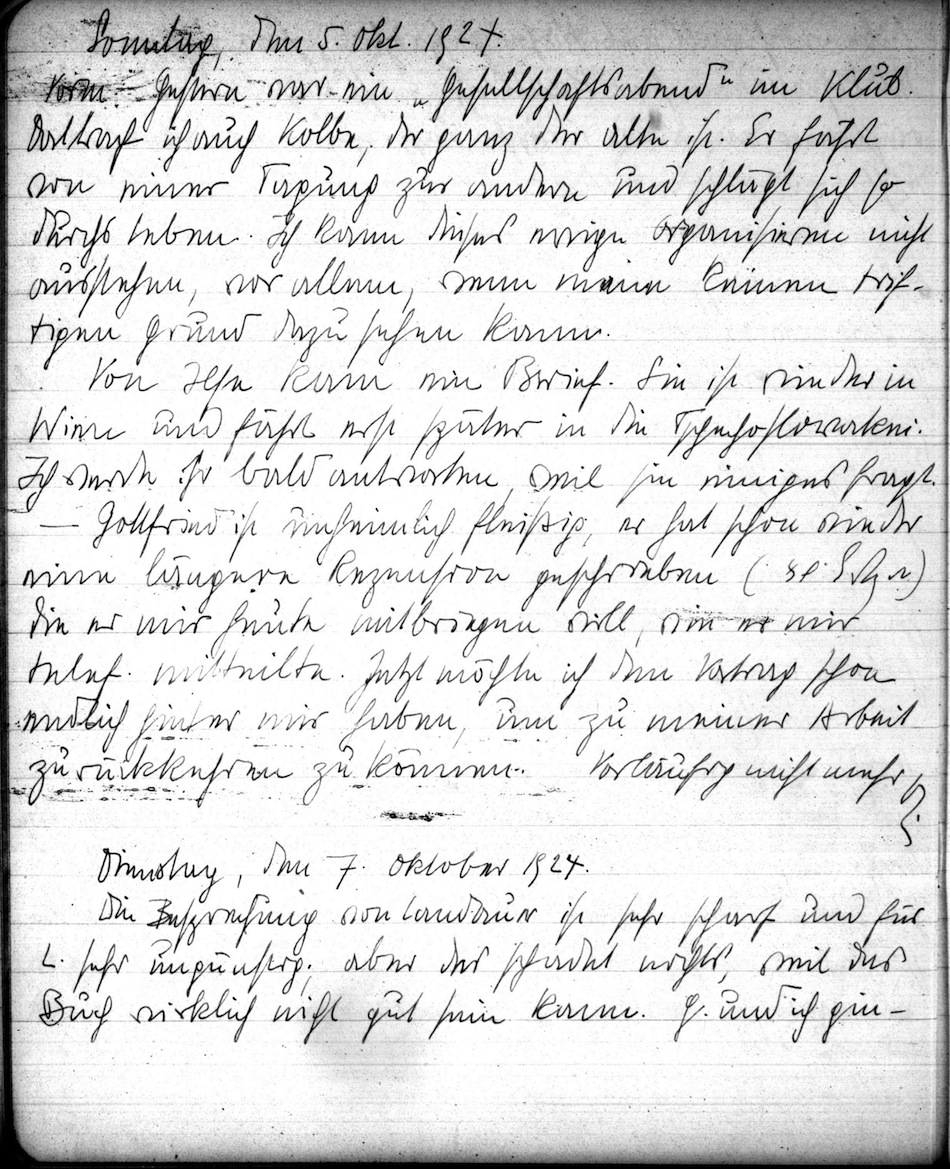 Sonntag, den 5. Okt. 1924.
Vorm. Gestern war ein „Gesellschaftsabend“ im Klub.
Dort traf ich auch Kolbe, der ganz der alte ist. Er fährt
von einer Tagung zur andern und schlägt sich so
durchs Leben. Ich kann dieses ewige Organisieren nicht
ausstehen, vor allem, wenn man keinen trif-
tigen Grund dazu sehen kann.
Von Ilse kam ein Brief. Sie ist wieder in
Wien und fährt erst später in die Tschechoslowakei.
Ich werde ihr bald antworten, weil sie einiges fragt.
— Gottfried ist unheimlich fleißig, er hat schon wieder
eine längere Rezension geschrieben
die er mir heute mitbringen will, wie er mir
telef. mitteilte. Jetzt möchte ich den Vortrag schon
endlich hinter mir haben, um zu meiner Arbeit
zurückkehren zu können. Vorläufig nicht mehr,
Dienstag, den 7. Oktober 1924.
Die Besprechung von Landauer ist sehr scharf und für
L. sehr ungünstig; aber das schadet nichts, weil das
Buch wirklich nicht gut sein kann. G. und ich gin-